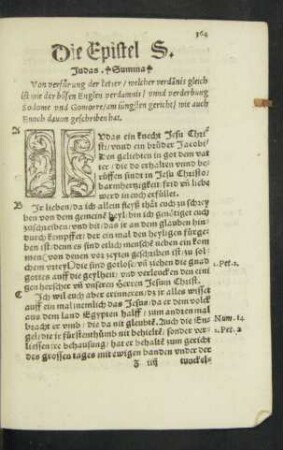 364
Die Epistel S.
Judas. Summa
Von verfürung der letter / welcher verdãnis gleich
ist wie der bösen Englen verdamnis / vnnd verderbung
Sodome vnd Gomorre / am jüngsten gericht / wie auch
Enoch dauon geschriben hat.
A
IVdas ein knecht Jesu Chri
sti / vnnd ein brüder Jacobi /
Den geliebten in got dem vat
ter / die do erhalten vnnd be
rüffen sindt in Jesu Christo /
barmhertzigkeit / frid vñ liebe
werd in euch erfüllet.
B Ir lieben / da ich allein fleyß thät euch zu schrey
ben von dem gemeinẽ heyl / bin ich genötiget euch
zuschreiben / vnd bit / das jr an dem glauben hin
durch kempffet / der ein mal den heyligen fürgeb
ben ist: denn es sind etlich menschẽ neben ein kom
men / von denen vor zeyten geschriben ist / zu sol
chem vrteyl / Die sind gotlose / vñ ziehen die gnad
gottes auff die geylheit / vnd verleucken den eini
gen herscher vñ unseren Herren Jesum Christ.
1. Pet. 2.
C Ich wil euch aber erinneren / dz jr alles wisset
auff ein mal nemlich das Jesus / da er dem volck
aus dem land Egypten halff / zum andten mal
bracht er vmb / die da nit gleubtẽ. Auch die En
gel / die jr fürstenthumb nit behielte / sonder ver
liessen jre behausung / hat er behaltẽ zum gericht
des grossen tages mit ewigen banden vnder der
Num. 14
2. Pet. 2